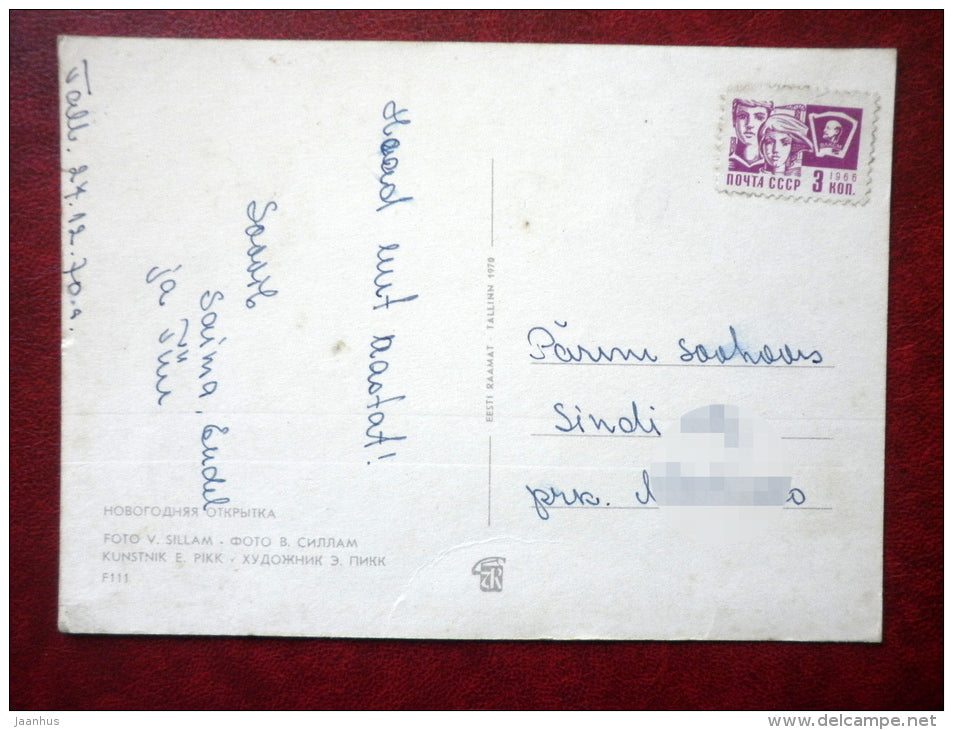 Tall. 27.12.70.a.
Head uut aastat!
Soovib
Saima, Endel
ja Jüri
НОВОГОДНЯЯ ОТКРЫТКА
FOTO V. SILLAM · ФОТО В. СИЛЛАМ
KUNSTNIK E. PIKK · ХУДОЖНИК Э. ПИКК
F111
EESTI RAAMAT TALLINN 1970
ПОЧТА СССР 3 КОП.
1966
Pärnu sovhoos
Sindi
prk.
jaanhus
www.delcampe.net